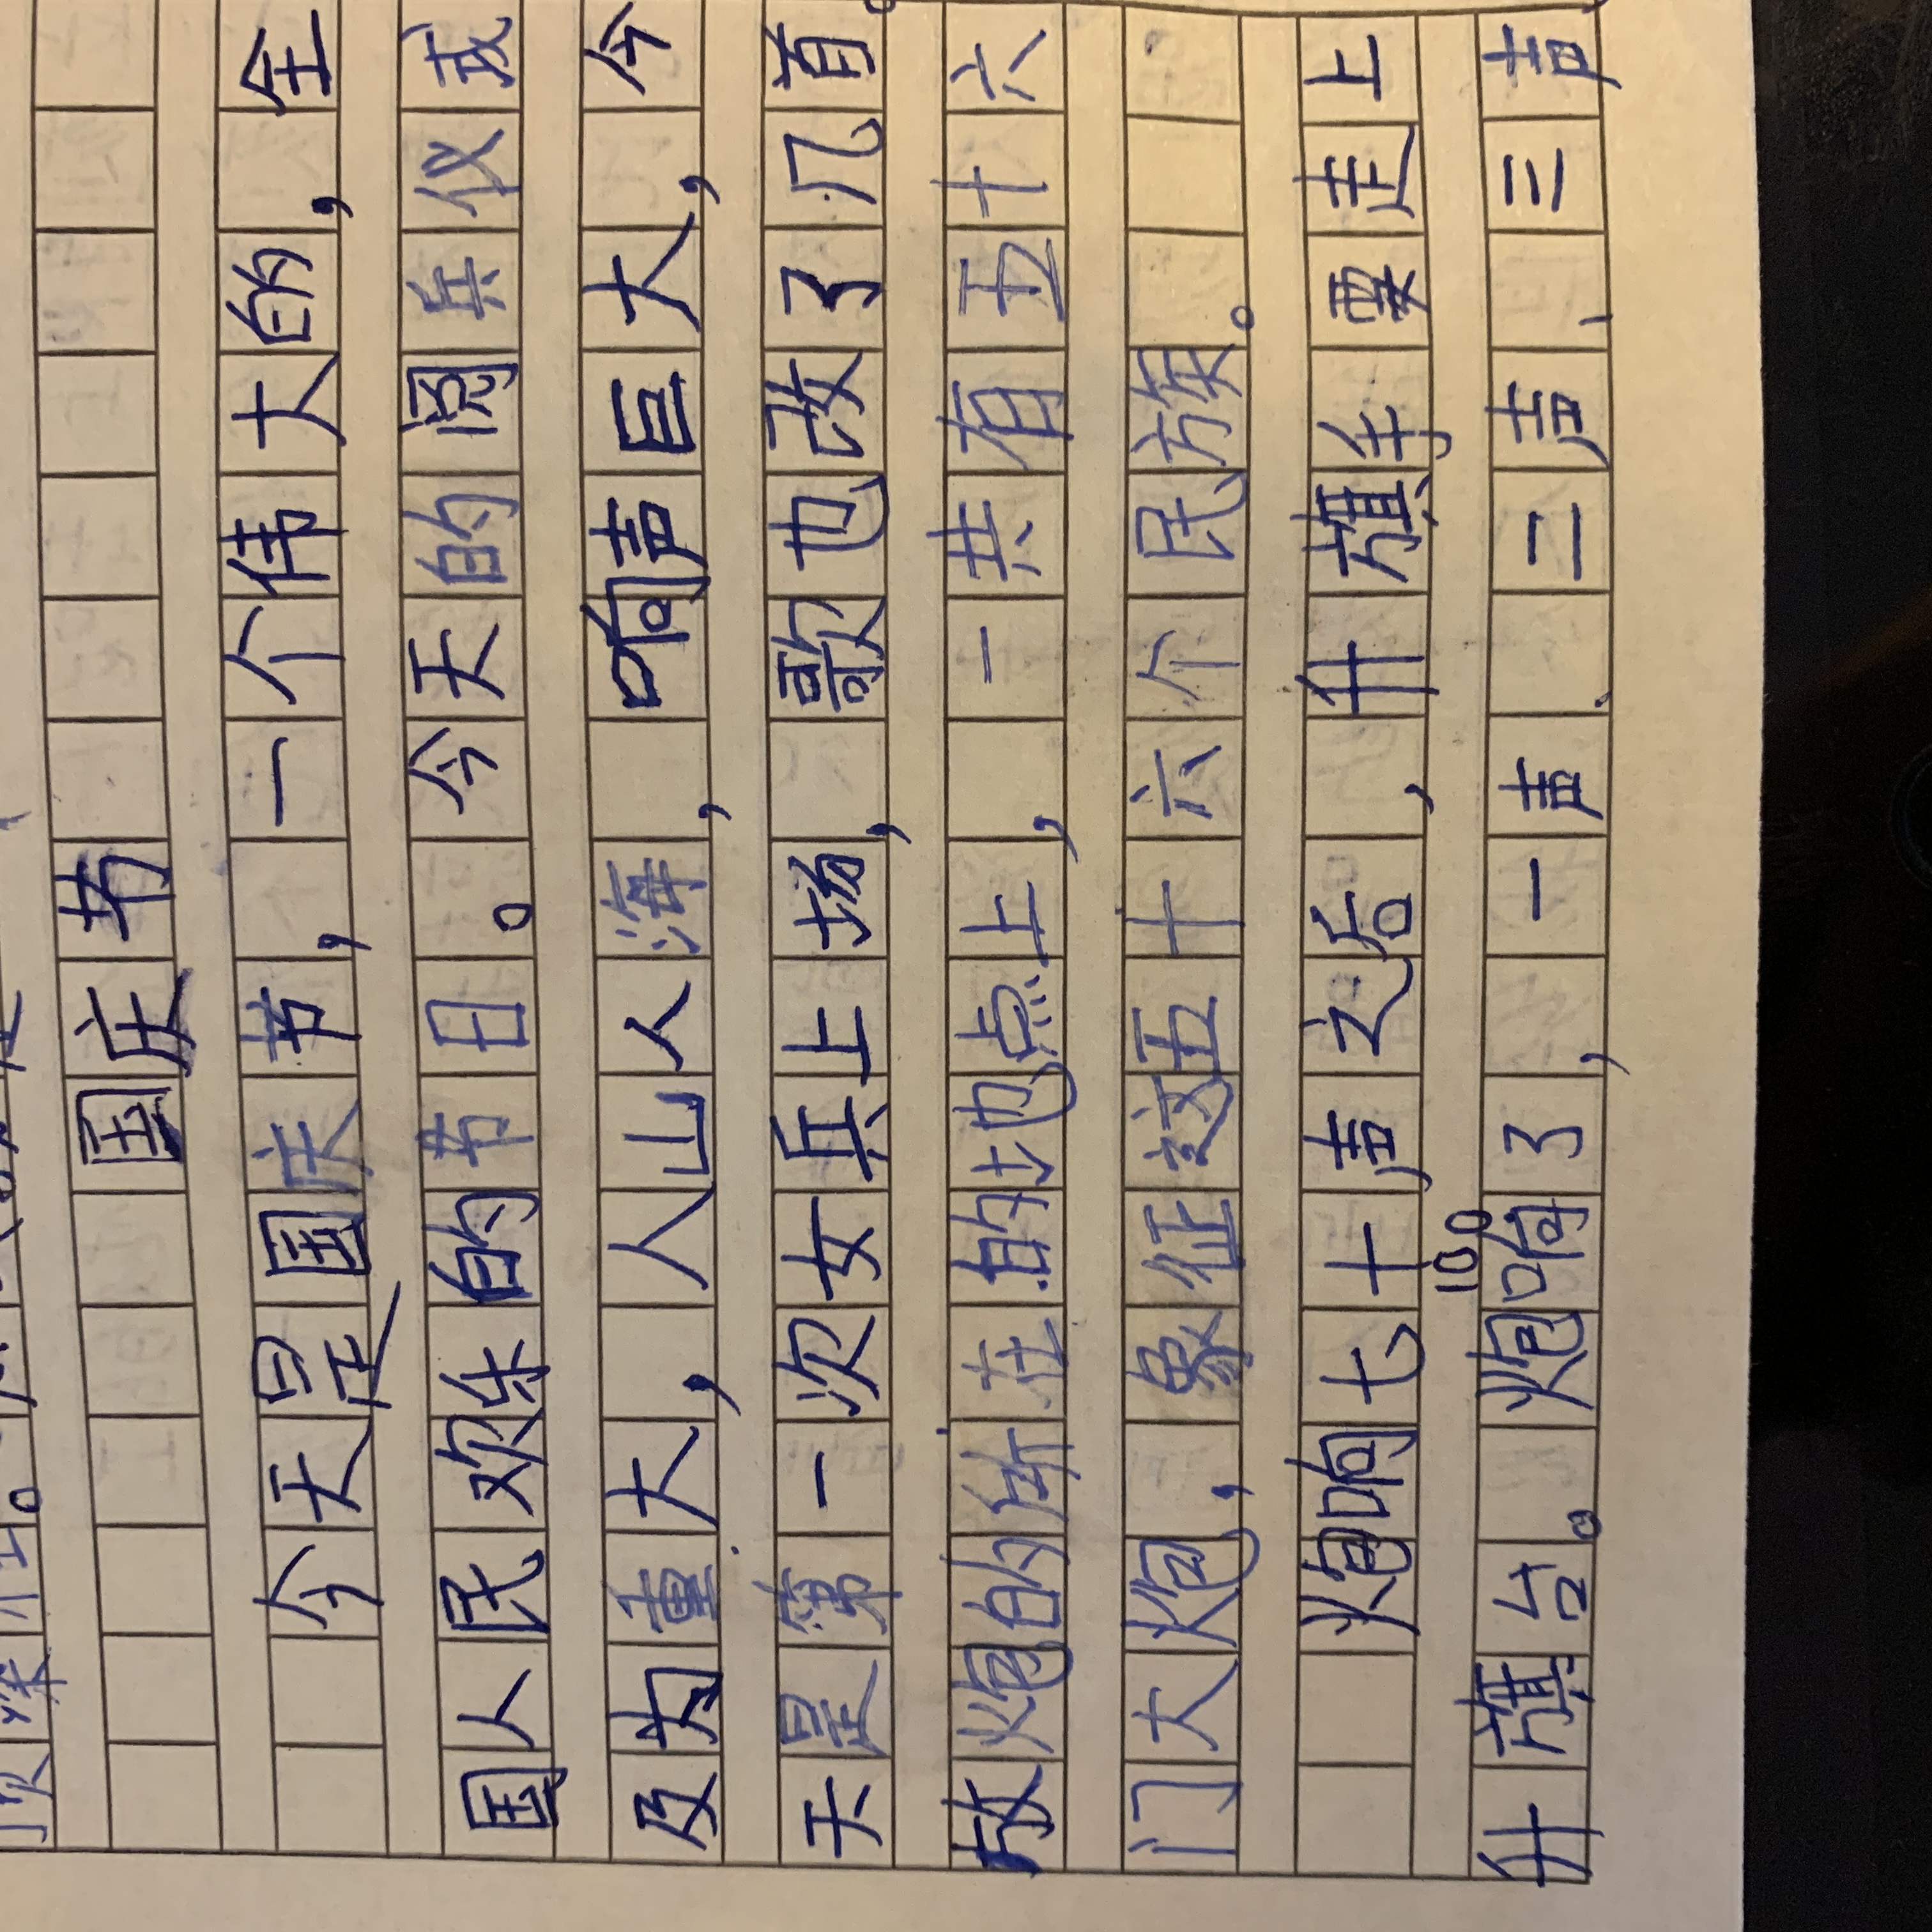 国庆节
今天是国庆节，一个伟大的，全
国人民欢乐的节日。今天的阅兵仪式
及为重大，人山人海，响声巨大，今
天是第一次女兵上场，歌也改了几首。
放炮的所在的地点上，一共有五十六
门大炮，象征这五十六个民族。
炮响七十声之后，升旗手要走上
100
升旗台。炮响了，一声、二声、三声、